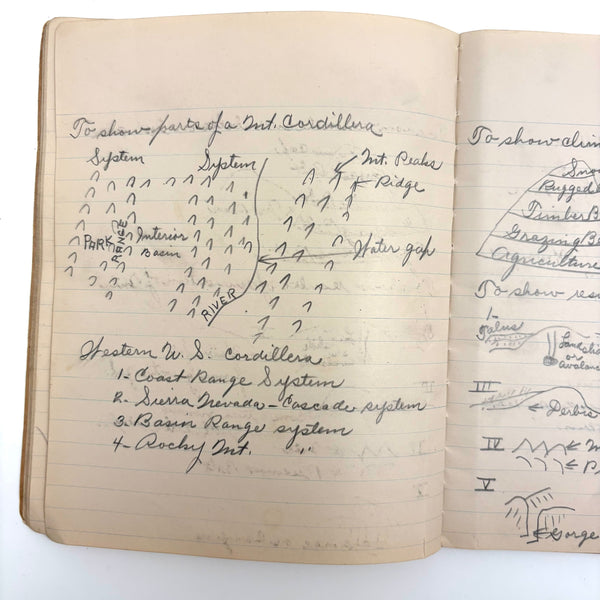 To show parts of a Mt. Cordillera
System System Mt. Peaks
Ridge
PARK RANGE Interior Basin
Water gap
RIVER
Western U. S. Cordillera
1- Coast Range System
2. Sierra Nevada - Cascade system
3. Basin Range system
4- Rocky Mt. "
To show clim
Sno
Rugged
Timber B
Grazing Be
Agriculture
To show res
1-
Talus
Landslid
or
avalan
III
Derbis
IV
M
P
V
Gorge